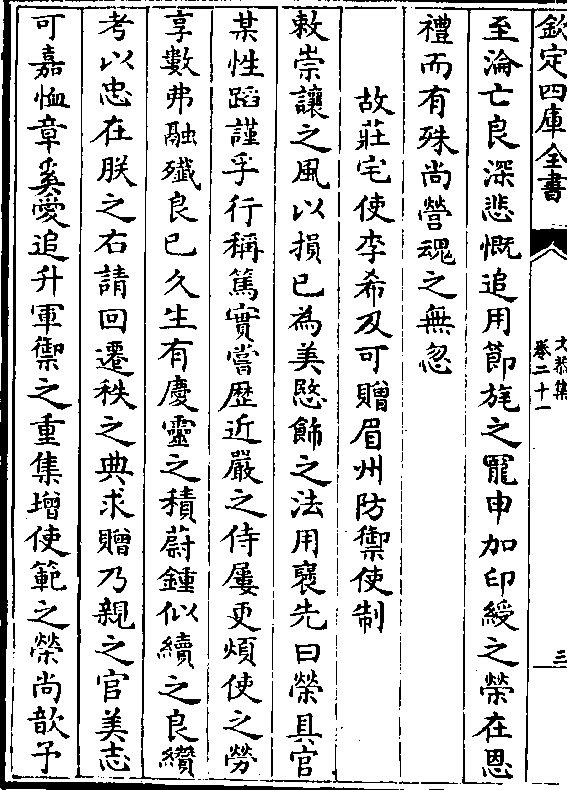 至淪亡良深悲慨追用節旄之寵申加印綬之榮在恩
禮而有殊尚營魂之無忽
故莊宅使李希及可贈眉州防禦使制
敕崇讓之風以損已為美愍飾之法用襃先曰榮具官
某性蹈謹乎行稱篤實嘗歴近嚴之侍屢更煩使之勞
享數弗融殲良已久生有慶靈之積蔚鍾似續之良纘
考以忠在朕之右請回遷秩之典求贈乃親之官美志
可嘉恤章奚愛追升軍禦之重集增使範之榮尚歆予
欽定四庫全書
文恭集
卷二十一
三